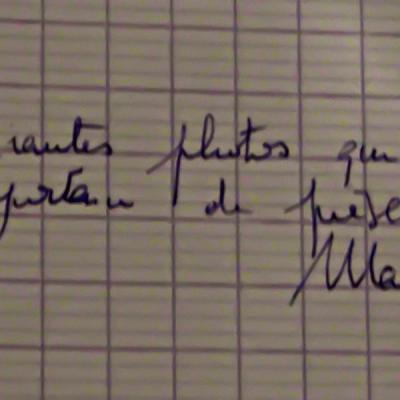 rantes photos qui
portain de prése
Ma